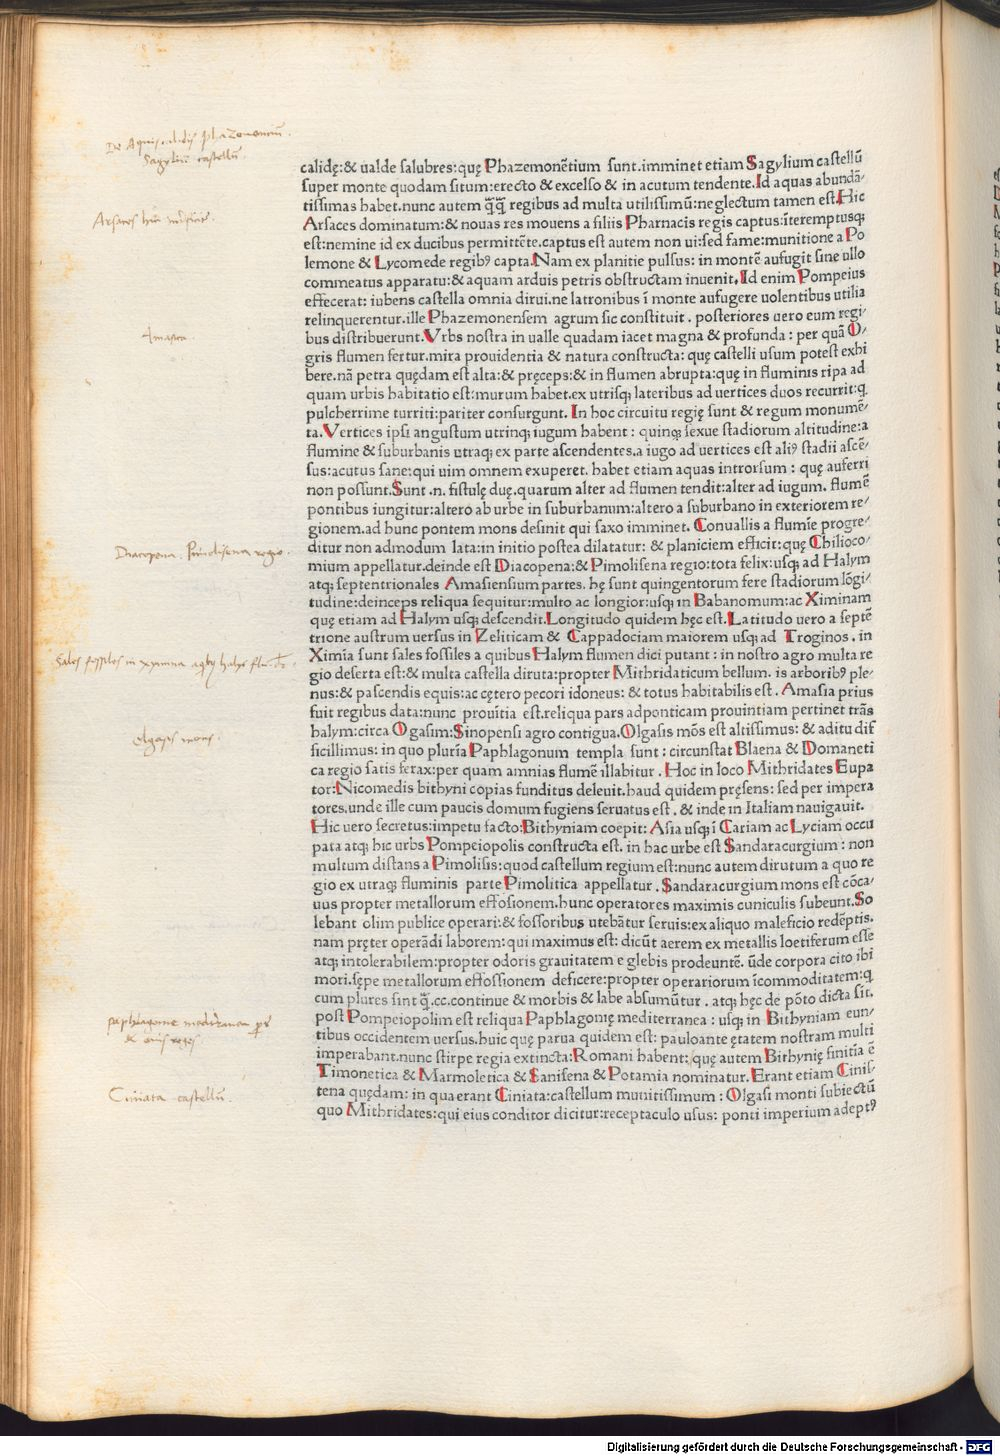 De Aquis calidis phazemonensium.
Sagylium castellũ.
calidę:& ualde salubres:quę Phazemonẽtium sunt.imminet etiam Sagylium castellũ
super monte quodam situm:erecto & excelso & in acutum tendente.Id aquas abundã⸗
tissimas habet.nunc autem q̃q̃ regibus ad multa utilissimũ:neglectum tamen est.Hic
Arsaces dominatum:& nouas res mouens a filiis Pharnacis regis captus:ĩteremptusq;
est:nemine id ex ducibus permittẽte.captus est autem non ui:sed fame:munitione a Po
lemone & Lycomede regibꝰ capta.Nam ex planitie pulsus: in montẽ aufugit sine ullo
commeatus apparatu:& aquam arduis petris obstructam inuenit.Id enim Pompeius
effecerat: iubens castella omnia dirui.ne latronibus ĩ monte aufugere uolentibus utilia
relinquerentur.ille Phazemonensem agrum sic constituit. posteriores uero eum regi⸗
bus distribuerunt.Vrbs nostra in ualle quadam iacet magna & profunda : per quã O⸗
Amasea.
gris flumen fertur.mira prouidentia & natura constructa: quę castelli usum potest exhi
bere.nã petra quędam est alta:& pręceps:& in flumen abrupta:que in fluminis ripa ad
quam urbis habitatio est:murum habet.ex utrisq; lateribus ad uertices duos recurrit:q
pulcherrime turriti:pariter consurgunt. In hoc circuitu regię sunt & regum monumẽ⸗
ta.Vertices ipsi angustum utrinq; iugum habent : quinq; sexue stadiorum altitudine:a
flumine & suburbanis utraq; ex parte ascendentes.a iugo ad uertices est aliꝰ stadii ascẽ⸗
sus:acutus sane:qui uim omnem exuperet. habet etiam aquas introrsum : quę auferri
non possunt.Sunt .n. fistulę duę.quarum alter ad flumen tendit:alter ad iugum. flumẽ
pontibus iungitur:altero ab urbe in suburbanum:altero a suburbano in exteriorem re⸗
gionem.ad hunc pontem mons desinit qui saxo imminet. Conuallis a flumĩe progre⸗
Diacopena. Pimolisena regio.
ditur non admodum lata:in initio postea dilatatur: & planiciem efficit:quę Chilioco⸗
mium appellatur.deinde est Diacopena:& Pimolisena regio:tota felix:usq; ad Halym
atq; septentrionales Amasiensium partes. hę sunt quingentorum fere stadiorum lõgi⸗
tudine:deinceps reliqua sequitur:multo ac longior:usq; in Babanomum:ac Ximinam
quę etiam ad Halym usq; descendit.Longitudo quidem hęc est.Latitudo uero a septẽ
trione austrum uersus in Zeliticam & Cappadociam maiorem usq; ad Troginos. in
Ximĩa sunt sales fossiles a quibus Halym flumen dici putant : in nostro agro multa re
gio deserta est:& multa castella diruta:propter Mithridaticum bellum. is arboribꝰ ple⸗
nus:& pascendis equis:ac cętero pecori idoneus: & totus habitabilis est. Amasia prius
fuit regibus data:nunc prouĩtia est.reliqua pars ad ponticam prouintiam pertinet trãs
halym:circa Ogasim:Sinopensi agro contigua.Olgasis mõs est altissimus: & aditu dif
Olgasis mons.
ficillimus: in quo plurĩa Paphlagonum templa sunt : circunstat Blaena & Domaneti
ca regio satis ferax:per quam amnias flumẽ illabitur. Hoc in loco Mithridates Eupa
tor:Nicomedis bithyni copias funditus deleuit.haud quidem pręsens: sed per impera
tores.unde ille cum paucis domum fugiens seruatus est. & inde in Italiam nauigauit.
Hic uero secretus:impetu facto:Bithyniam coepit: Asia usq; ĩ Cariam ac Lyciam occu
pata atq; hic urbs Pompeiopolis constructa est. in hac urbe est Sandaracurgium : non
multum distans a Pimolisis:quod castellum regium est:nunc autem dirutum a quo re
gio ex utraq; fluminis parte Pimolitica appellatur. Sandaracurgium mons est cõca⸗
uus propter metallorum effosionem.hunc operatores maximis cuniculis subeunt.So
lebant olim publice operari:& fossoribus utebãtur seruis:ex aliquo maleficio redẽptis.
nam pręter operãdi laborem:qui maximus est: dicũt aerem ex metallis loetiferum esse
atq; intolerabilem:propter odoris grauitatem e glebis prodeuntẽ. ũde corpora cito ibi
mori.sępe metallorum effossionem deficere:propter operariorum ĩcommoditatem:q
cum plures sint q̃.cc.continue & morbis & labe absumũtur. atq; hęc de põto dicta sit.
post Pompeiopolim est reliqua Paphlagonię mediterranea : usq; in Bithyniam eun⸗
tibus occidentem uersus.huic quę parua quidem est: pauloante ętatem nostram multi
imperabant.nunc stirpe regia extincta:Romani habent: quę autem Bithynię finitĩa ẽ
Timonetica & Marmoletica & Sanisena & Potamia nominatur. Erant etiam Cinis⸗
Ciniata castellũ.
tena quędam: in qua erant Ciniata:castellum munitissimum : Olgasi monti subiectũ
quo Mithridates:qui eius conditor dicitur:receptaculo usus: ponti imperium adeptꝰ
Digitalisierung gefördert durch die Deutsche Forschungsgemeinschaft - DFG